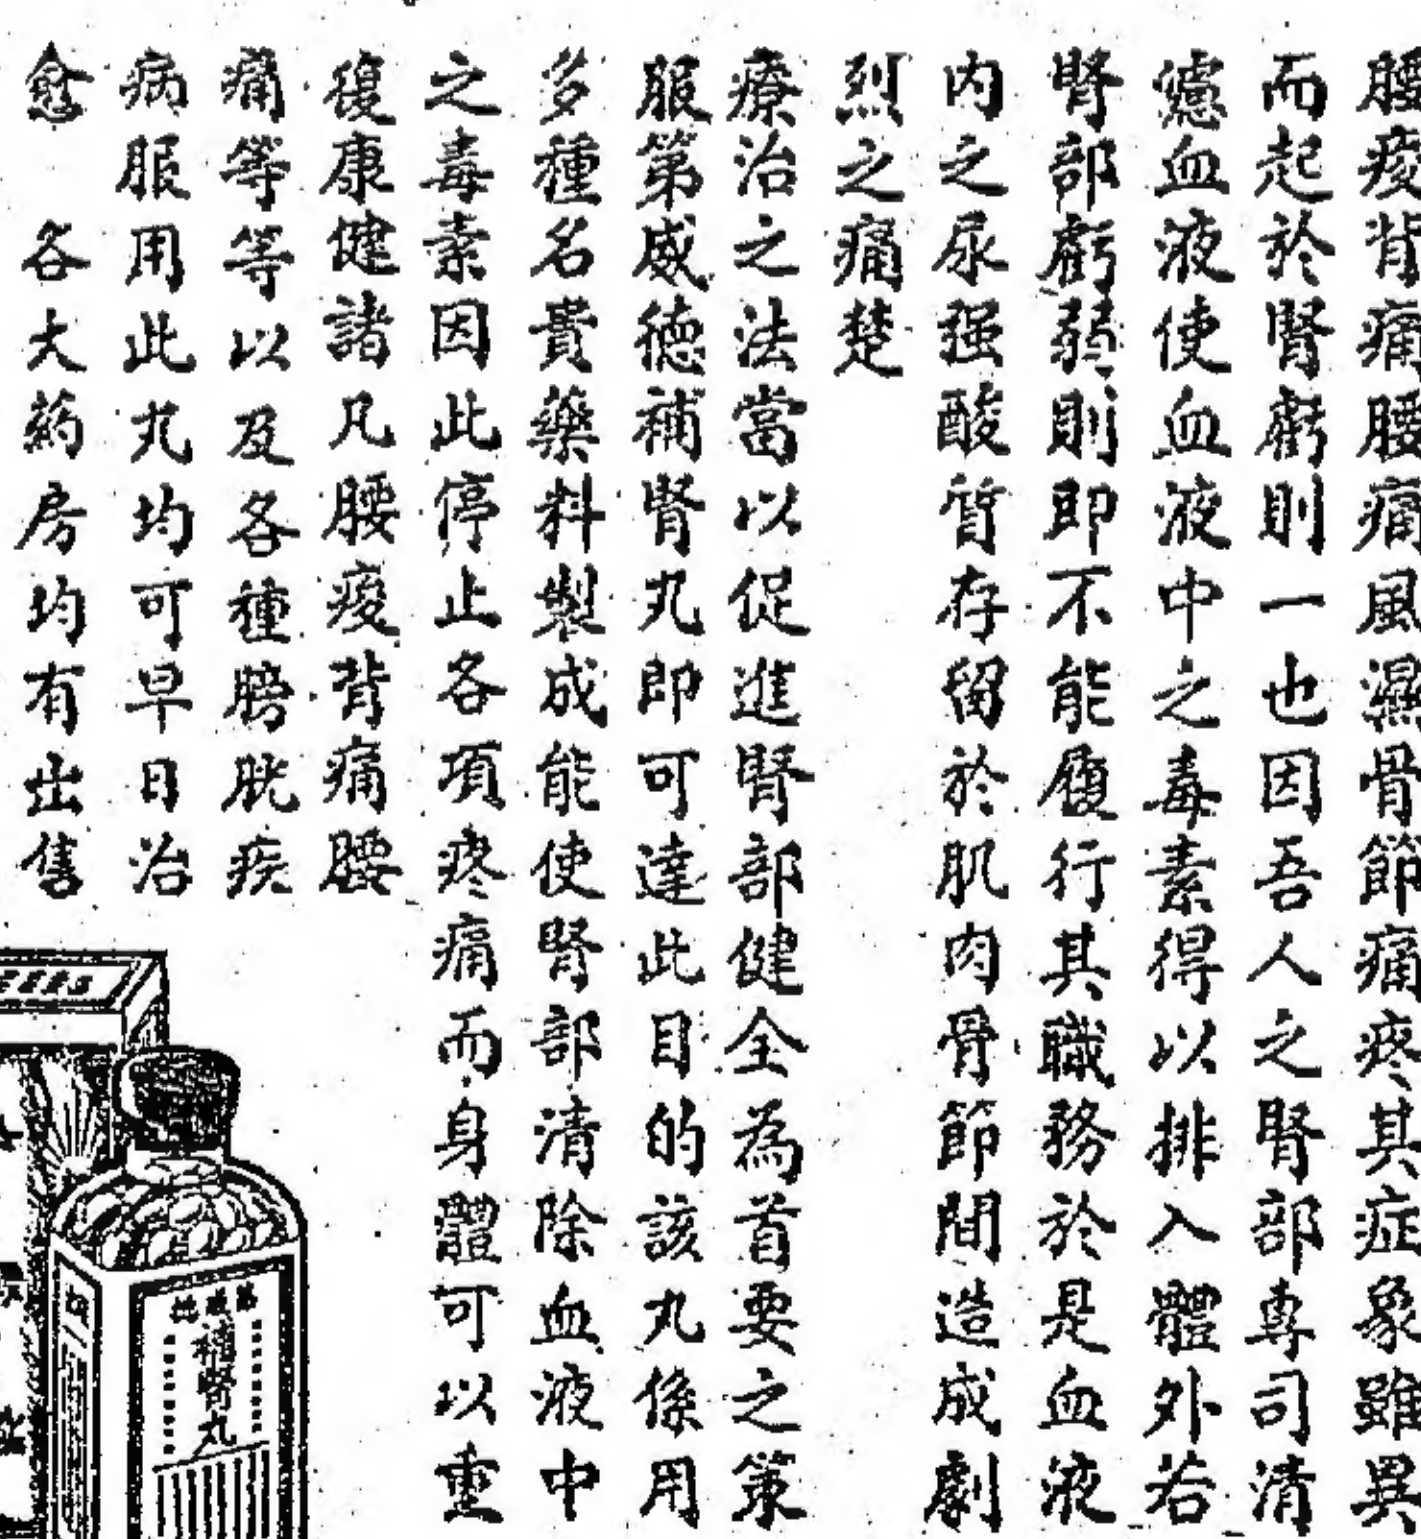 腰痠背痛腰痛風濕骨節痛疼其症象雖異
而起於腎虧則一也因吾人之腎部專司清
濾血液使血液中之毒素得以排入體外若
腎部虧弱則即不能履行其職務於是血液
内之尿强酸質存留於肌肉骨節間造成劇
烈之痛楚
療治之法當以促進腎部健全為首要之策
服第威德補腎丸即可達此目的該丸係用
多種名貴藥料製成能使腎部清除血液中
之毒素因此停止各項疼痛而身體可以重
復康健諸凡腰痠背痛腰
痛等等以及各種膀胱疾
病服用此丸均可早日治
愈 各大药房均有出售
第威德
補腎丸